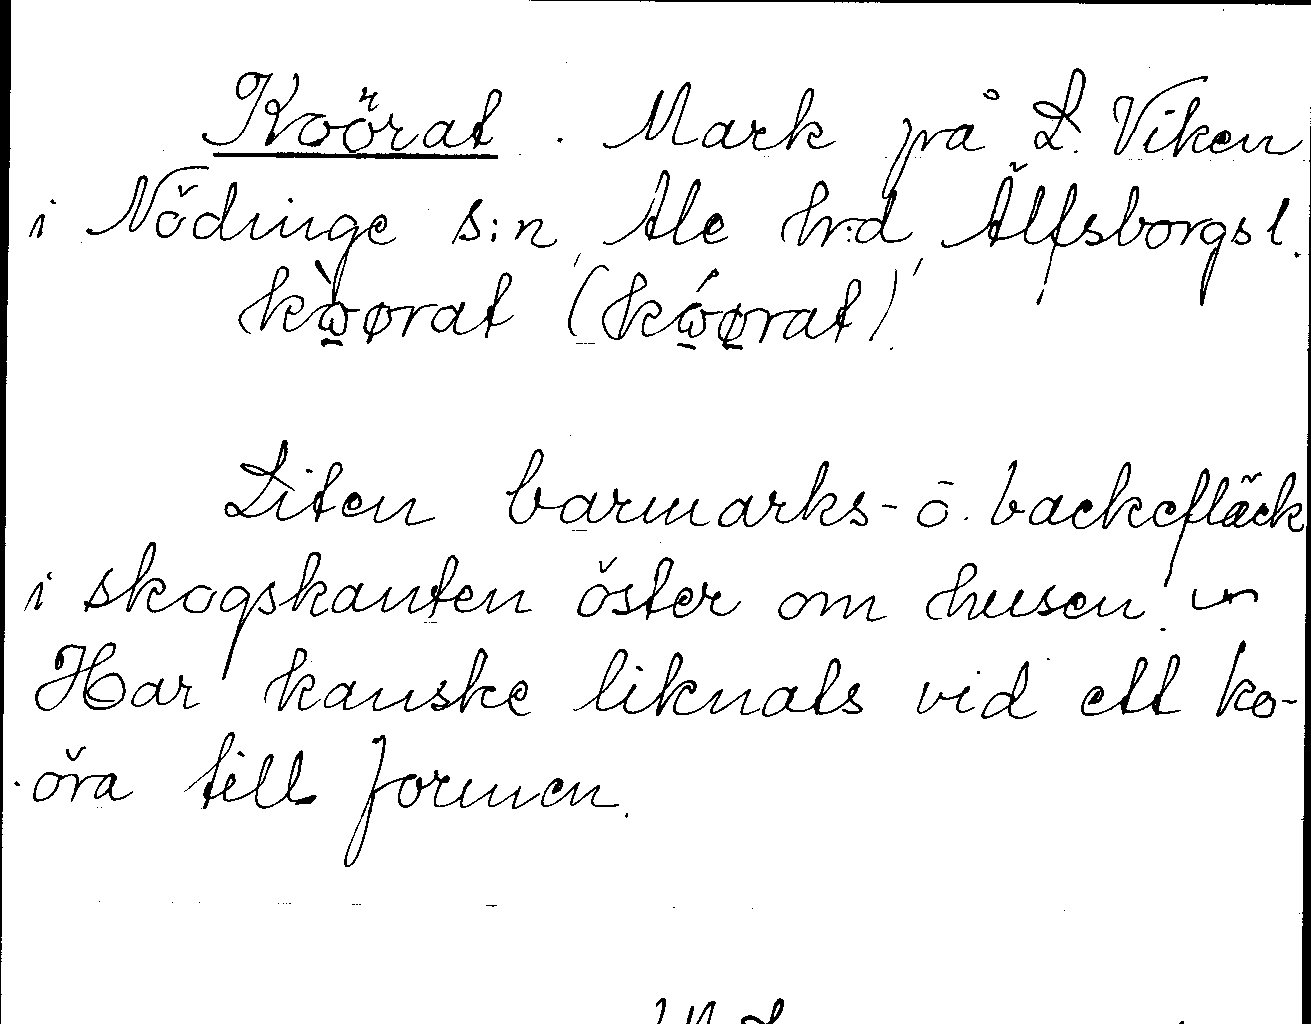 Koörat. Mark på L. Viken
i Nödinge s:n, Ale hrd, Älfsborgs l.
kὼørat (kώørat).
Liten barmarks- o. backefläck
i skogskanten öster om husen. ~
Har kanske liknats vid ett ko-
öra till formen.